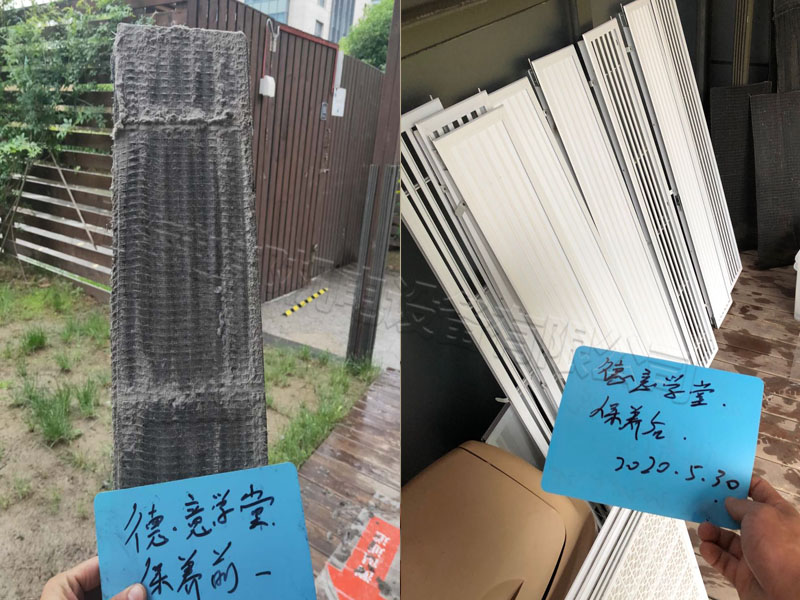 德意学堂
保养前一
德意学堂.
保养后.
2020.5.30